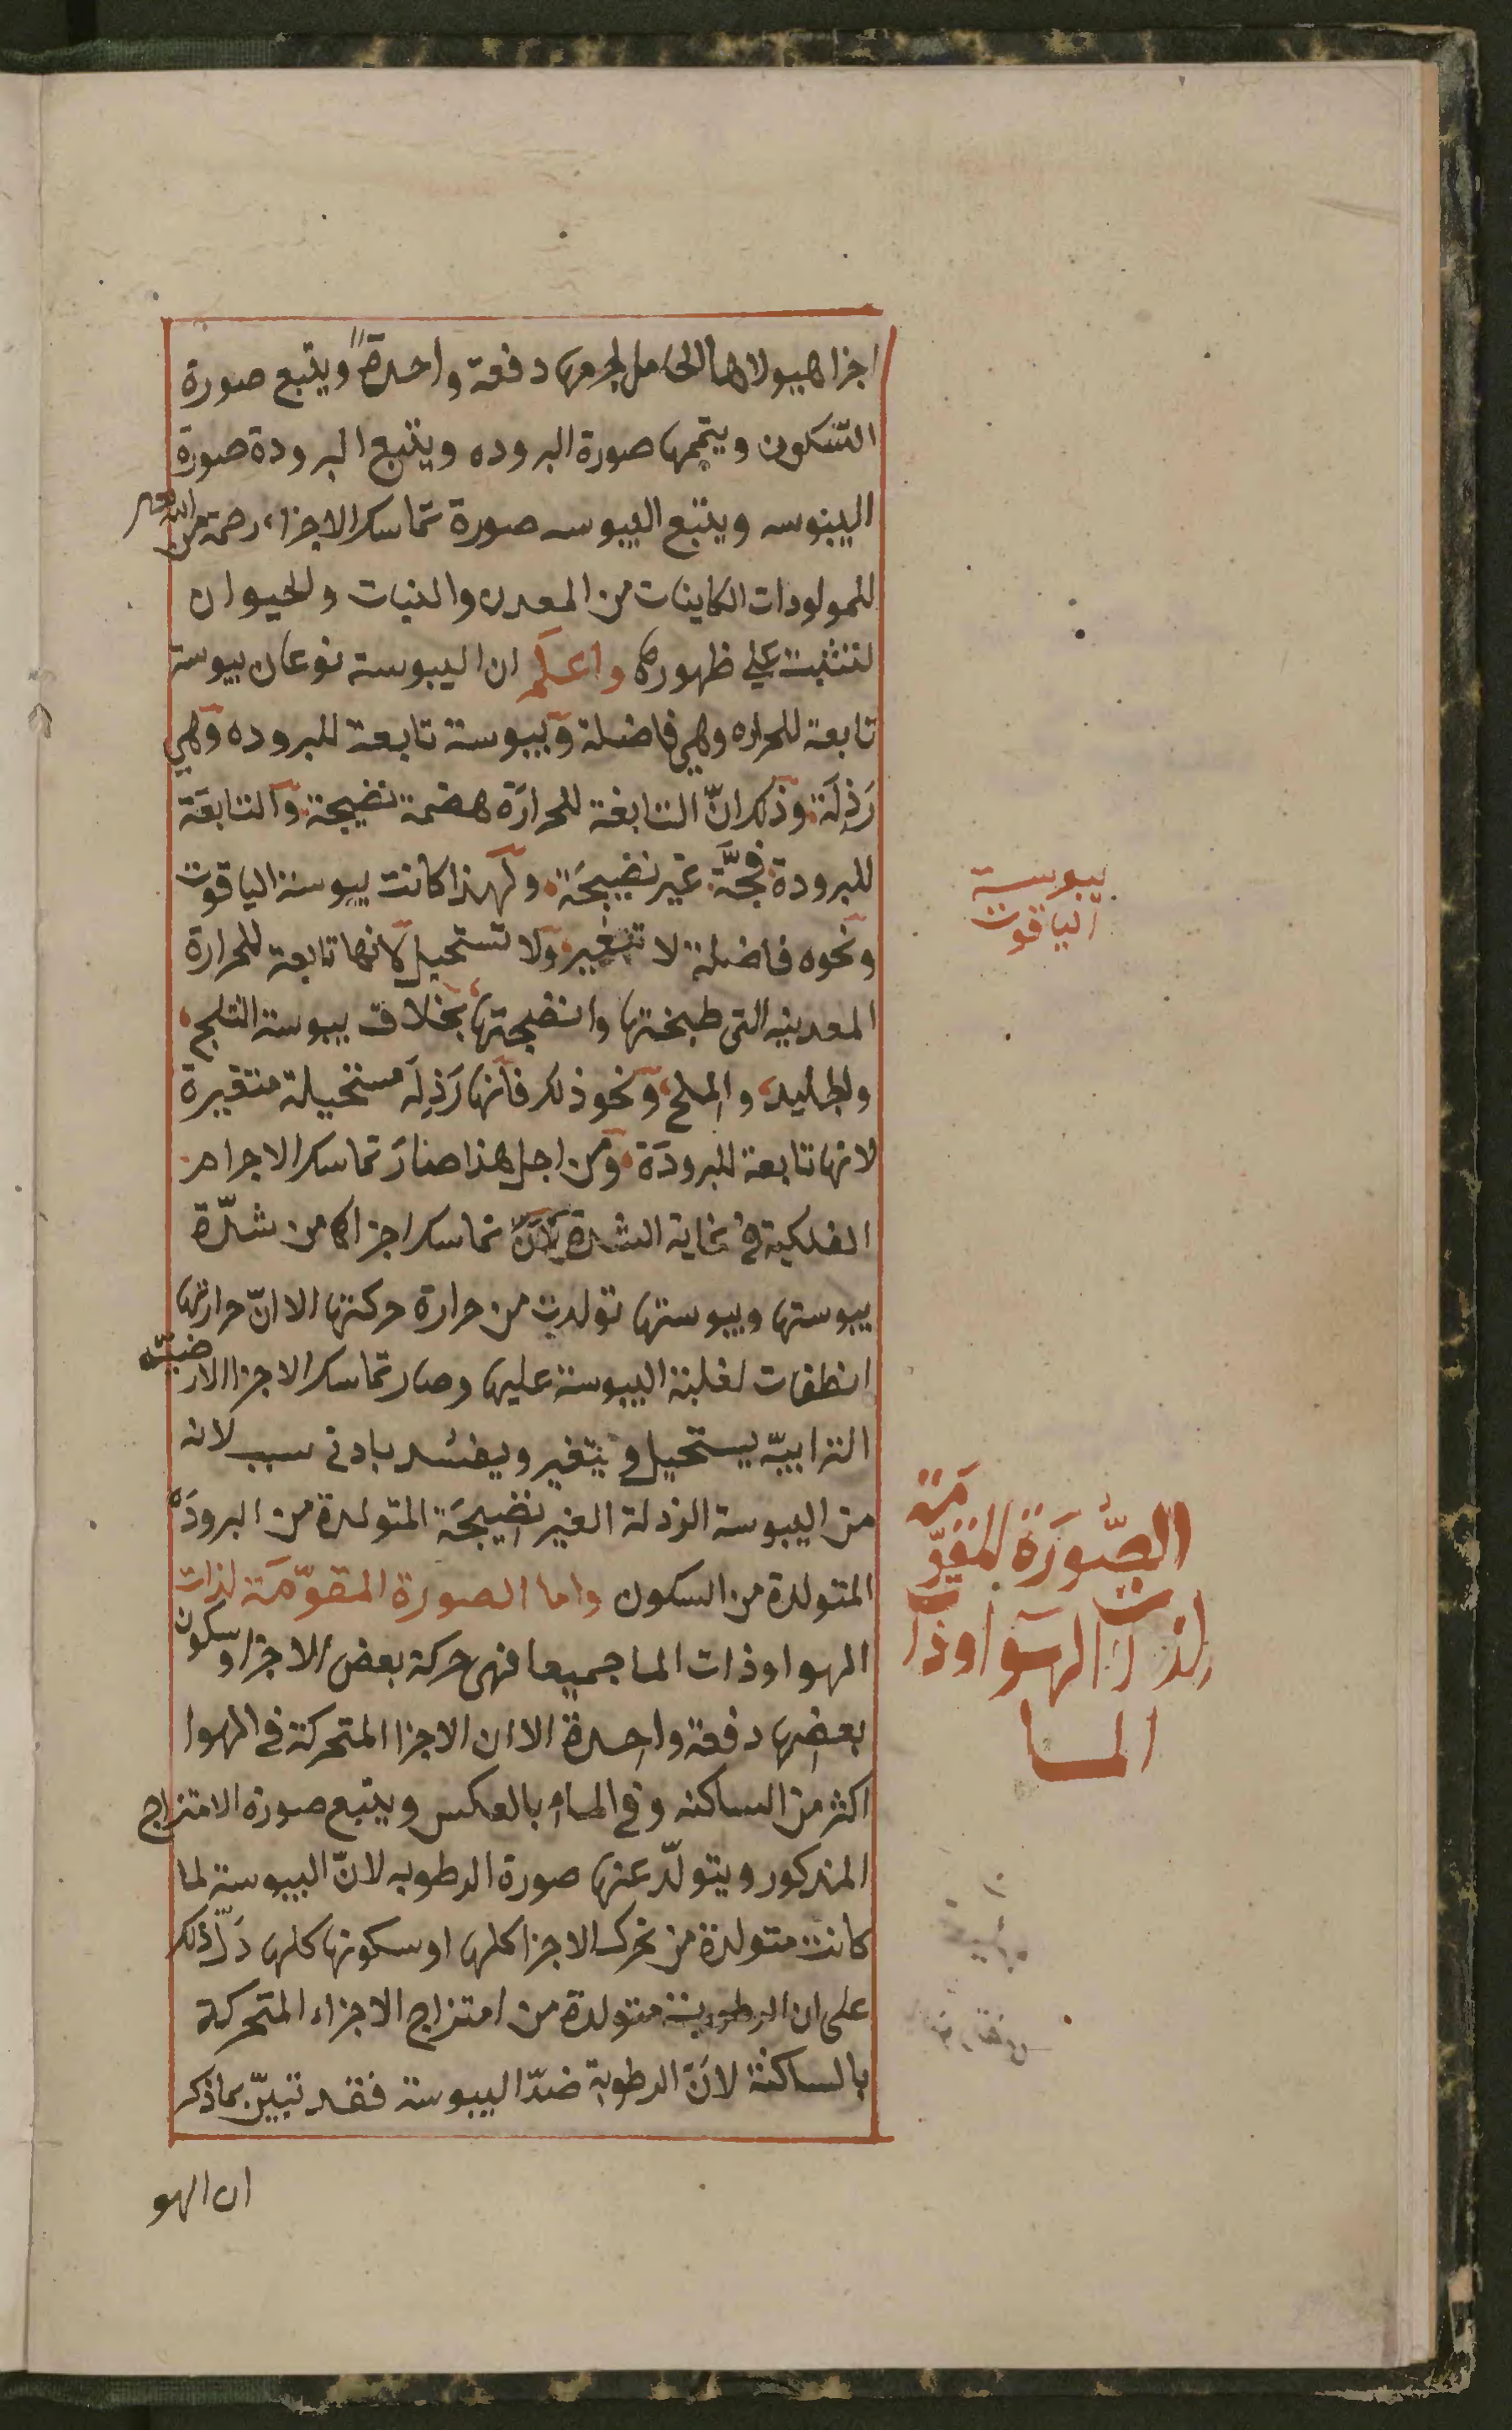 اجزا هيولاها الحامل لجرمها دفعة واحدةً ويتبع صورة
التسكون ويتممها صورة البروده ويتبع البرودة صورة
اليبوسه ويتبع اليبوسه صورة تماسك الاجزاء رحمة من الله
للمولودات الكاينات من المعدن والنبات والحيوان
لتثبت على ظهورها واعلم ان اليبوسة نوعان يبوسة
تابعة للحراره وهي فاضلة ويبوسة تابعة للبروده وهي
رَذِلَة وذلك انّ التابعة للحرارة هضمة نضيجة والتابعَة
للبرودة فجَّة غير نضيجَة ولهذا كانت يبوسة الياقوت
ونحوه فاضلة لا تتغير ولا تستحيل لانها تابعة للحرارة
المعدنيه التى طبختها وانضجتها بخلاف يبوسة الثلج
والجليد والملح ونحو ذلك فانها رَذِلَة مستحيلة متغيرة
لانها تابعة للبرودَة ومن اجل هذا صارَ تماسك الاجرام
الفلكية في غاية الشدة لانّ تماسك اجزاها من شدّة
يبوستها ويبوستها تولدت من حرارة حركتها الا انّ حرارتها
انطفات لغلبة اليبوسة عليها وصار تماسك الاجزا الارضيّه
الترابيّه يستحيل ويتغير ويفسُد بادنى سبب لانه
من اليبوسة الرذلة الغير نضيجَة المتولدة من البرودَه
المتولدة من السكون واما الصورة المقوّمَة لذات
الهوا وذات الما جميعا فهى حركة بعض الاجزا وسكون
بعضها دفعة واحدة الا ان الاجزا المتحركة في الهوا
اكثر من الساكنه وفي الماء بالعكس ويتبع صورة الامتزاج
المذكور ويتولّد عنها صورة الرطوبه لانّ اليبوسة لما
كانت متولدة من تحرك الاجزا كلها او سكونها كلها دَلّ ذلك
على ان الرطوبة متولدة من امتزاج الاجزاء المتحركة
بالساكنة لانَّ الرطوبة ضدّ اليبوسة فقد تبيّن بما ذكر
ان الهو
يبوسة
الياقوت
الصُّورَة المقوّمَة
لذات الهَوا وذات
الما